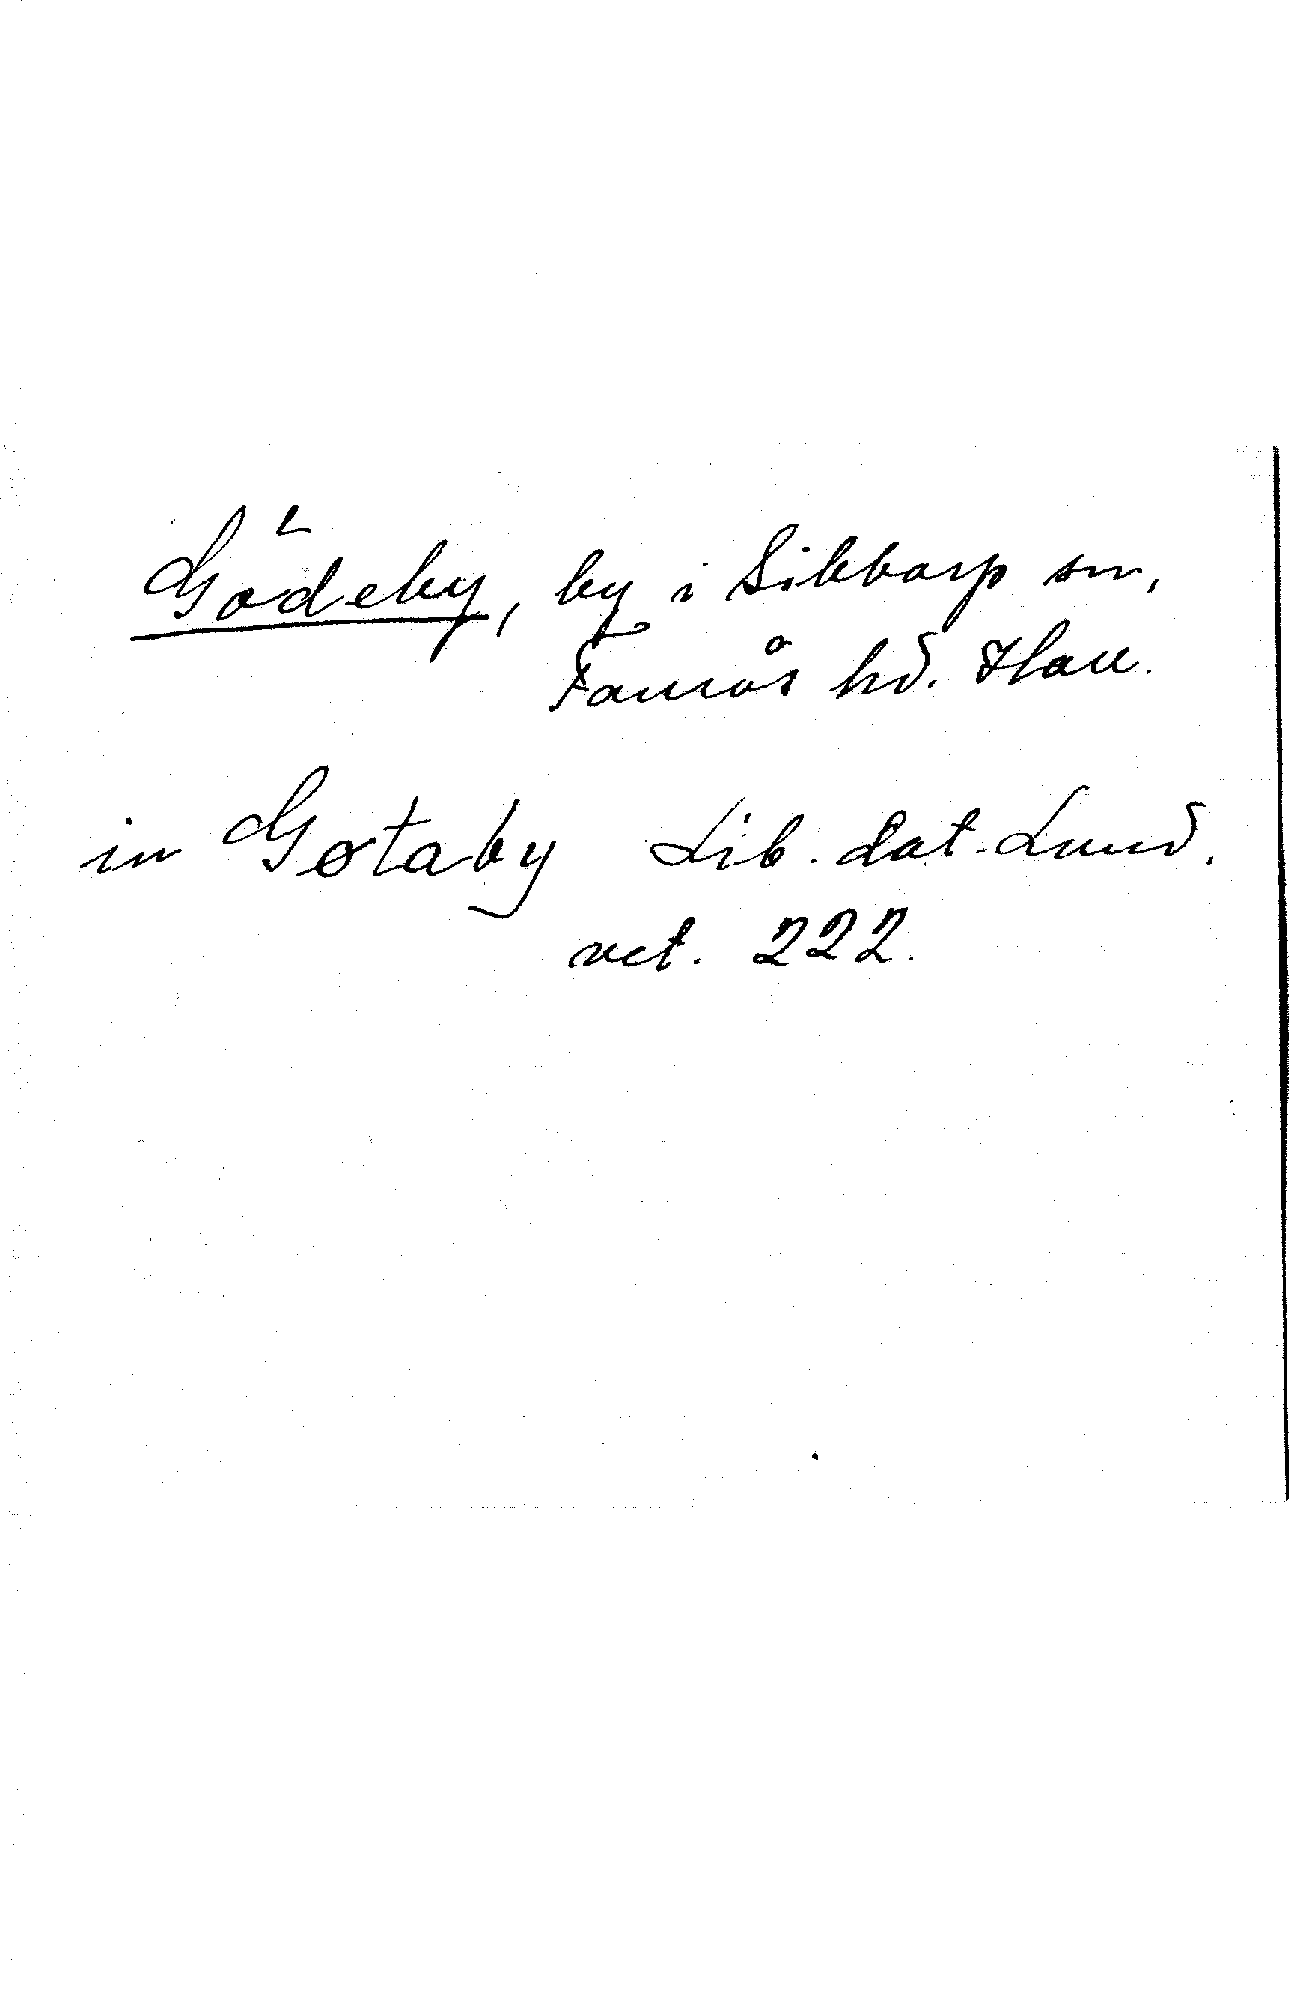 Gödeby, by i Sibbarp sn,
Faurås hd. Hall.
in Gøtaby Lib. dat. Lund.
vet. 222.